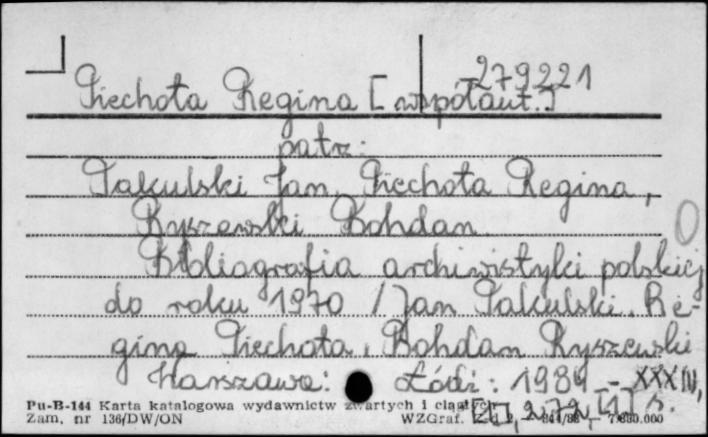 279221
Piechota Regina [współaut.]
patrz:
Pakulski Jan, Piechota Regina,
Ryszewski Bohdan
Bibliografia archiwistyki polskiej
do roku 1970 / Jan Pakulski, Re-
gina Piechota, Bohdan Ryszewski
Warszawa: Łódź: 1984. - XXXIV,
[2], 272, [1] s.
Pu-B-144 Karta katalogowa wydawnictw zwartych i ciągłych
Zam. nr 136/DW/ON WZGraf.